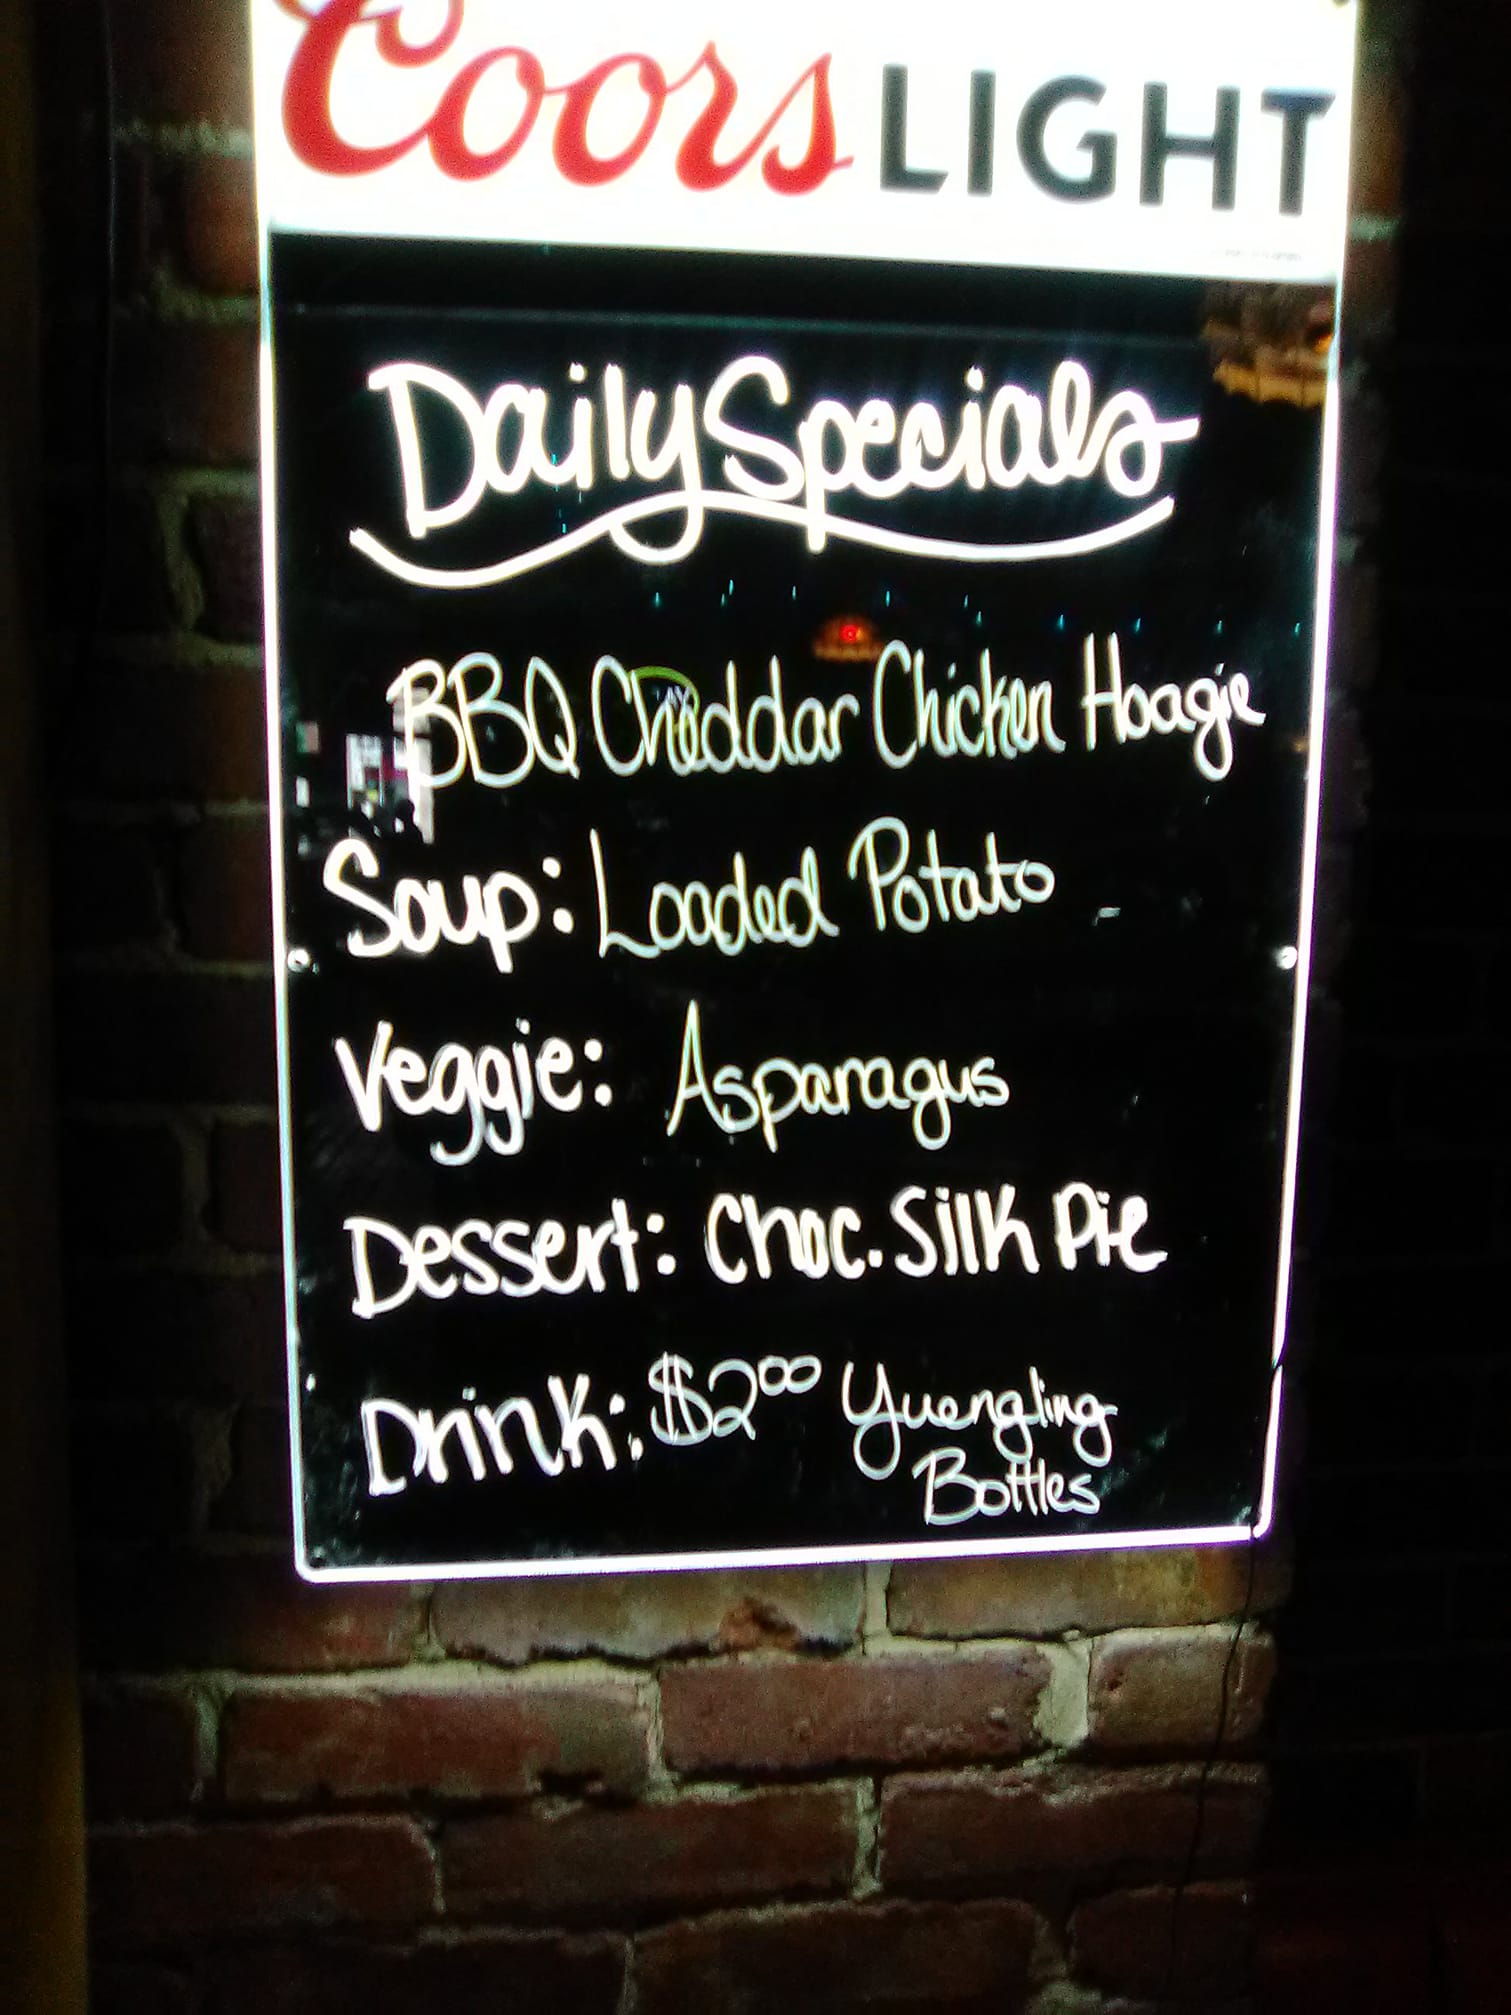 Coors LIGHT
Daily Specials
BBQ Cheddar Chicken Hoagie
Soup: Loaded Potato
Veggie: Asparagus
Dessert: Choc. Silk Pie
Drink: $2.00 Yuengling
Bottles